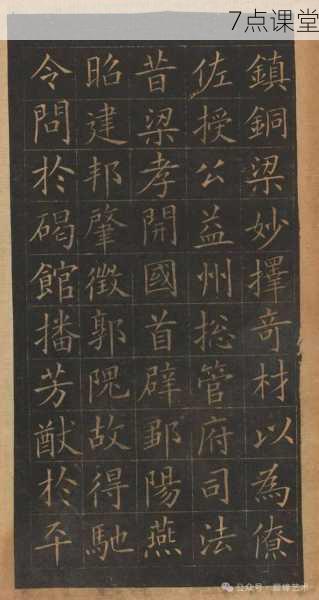 7点课堂
鎮銅梁妙擇竒材以為僚
佐授公益州捴管府司法
昔梁孝開國首辟鄒陽燕
昭建邦肇徵郭隗故得馳
令問於碣館播芳猷於平
公众号 · 艺术